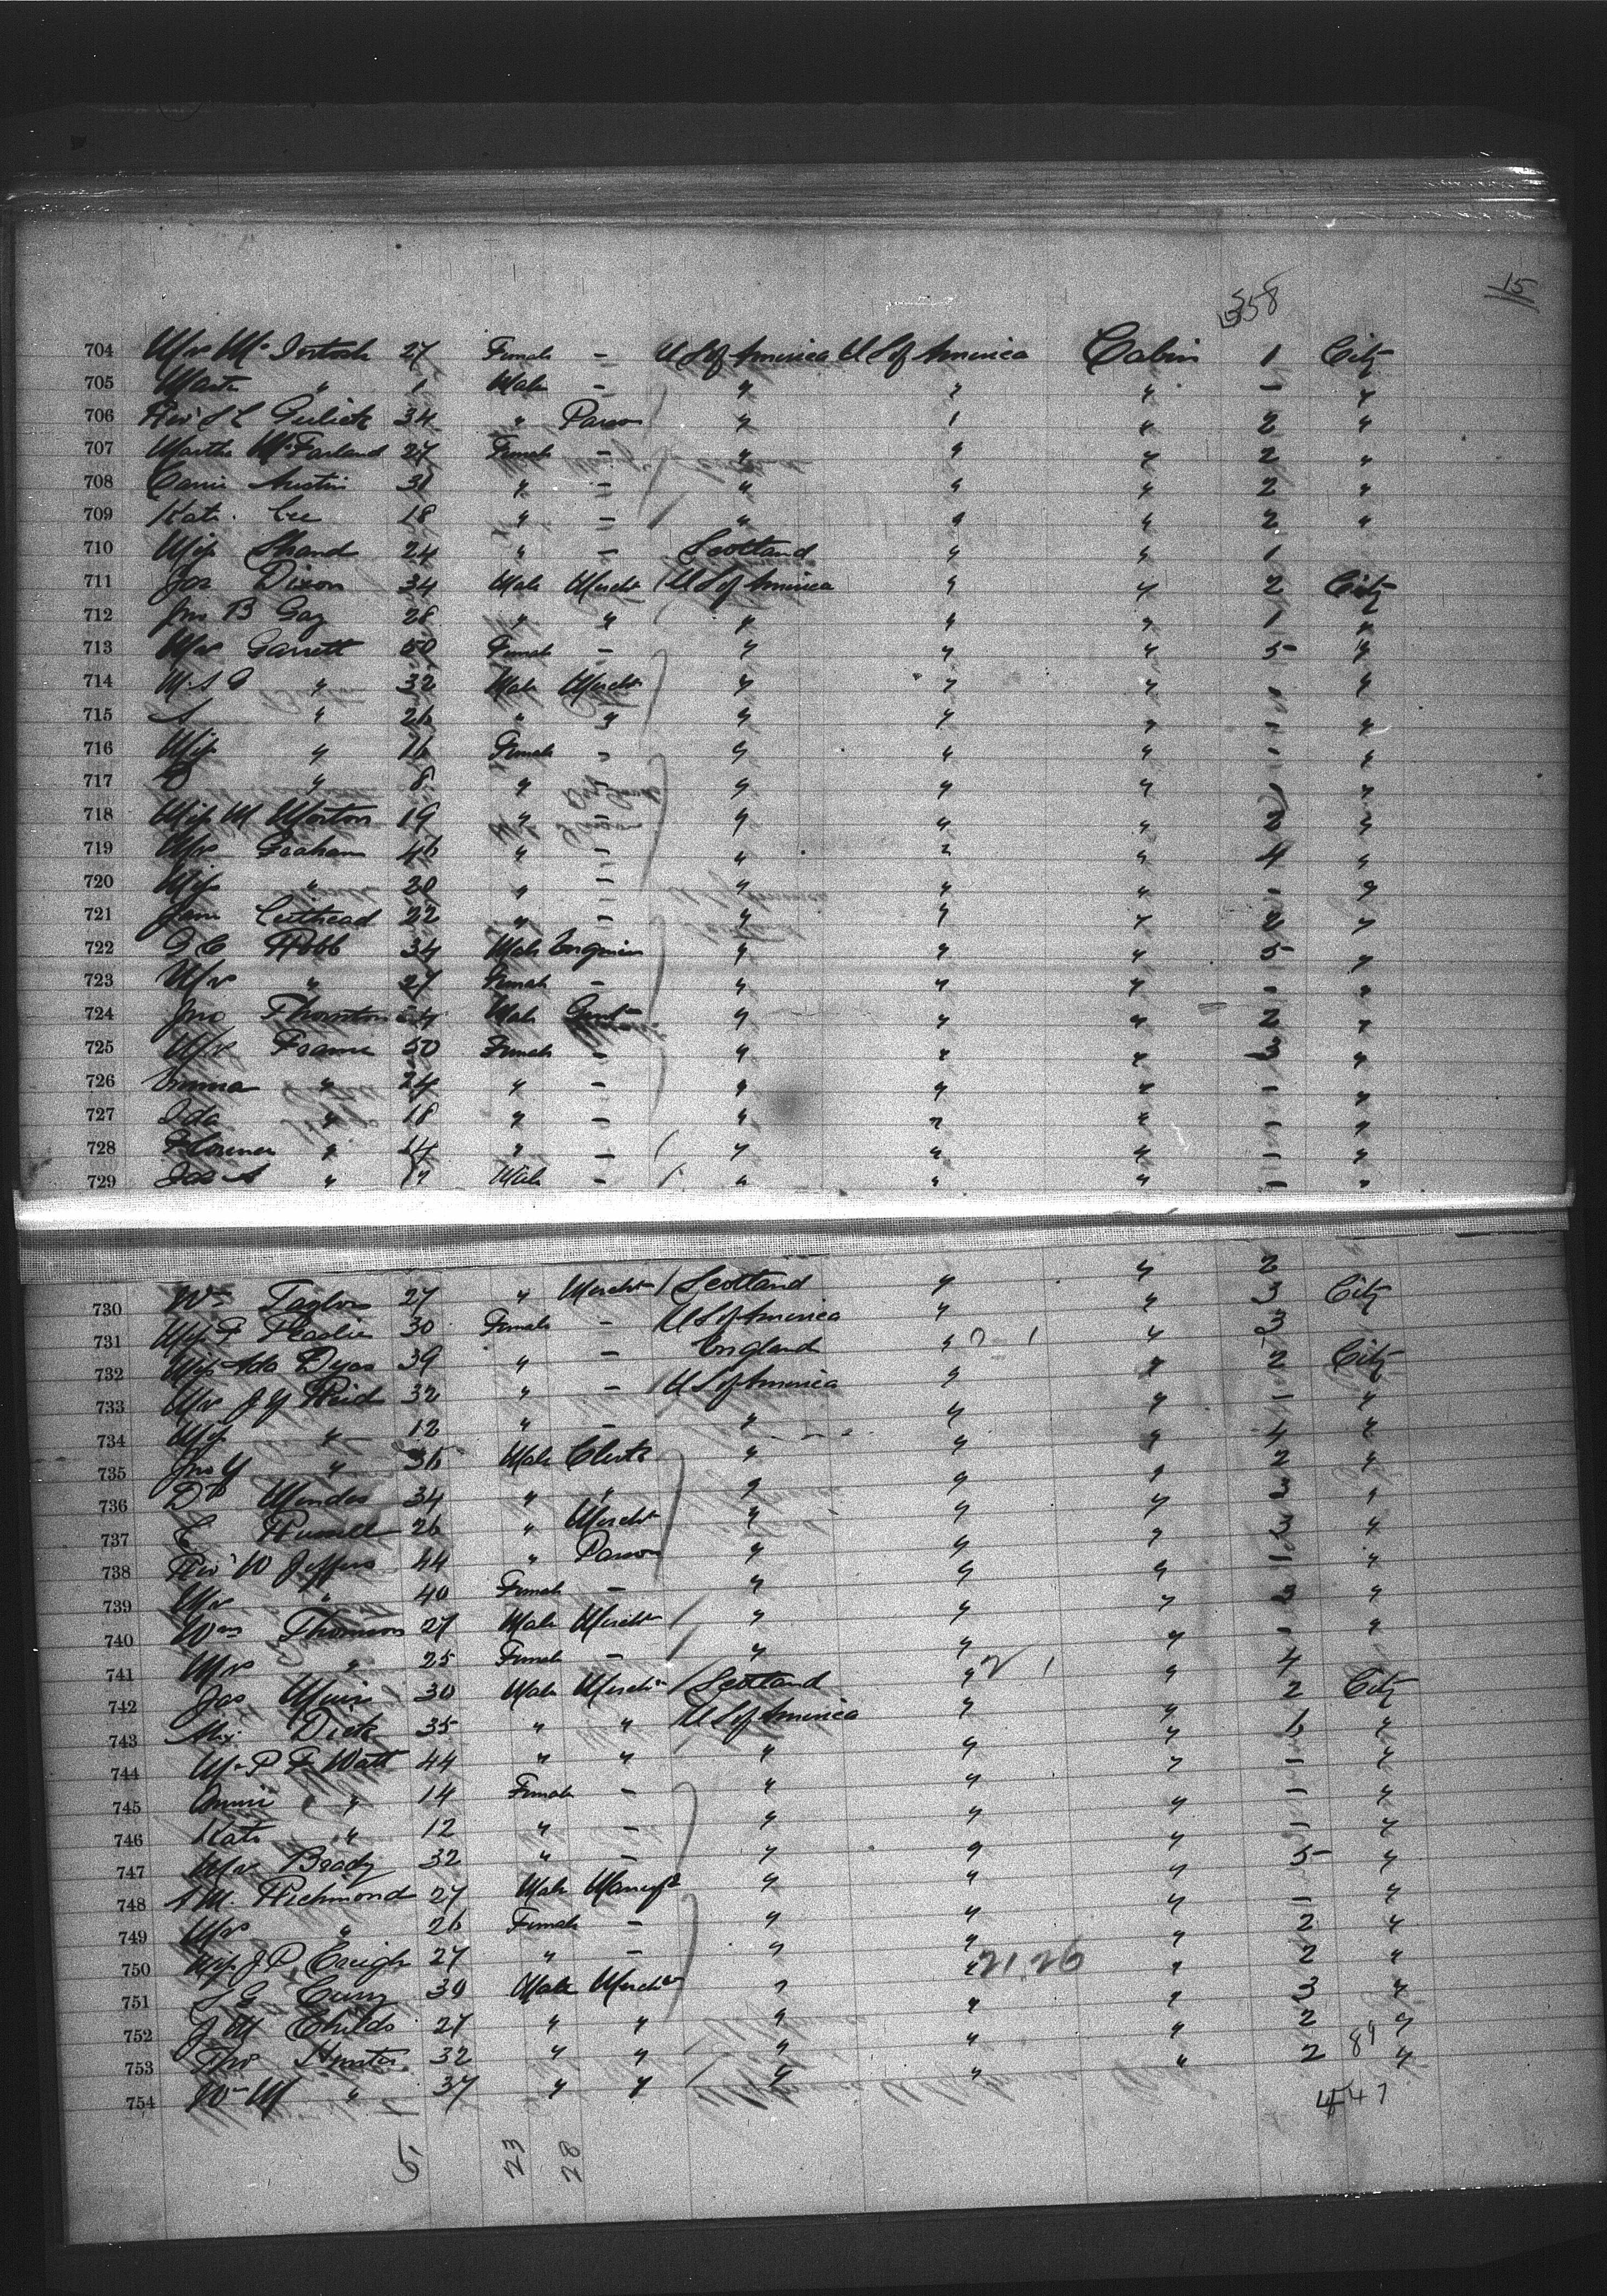 358
15
704 Mrs McIntosh 27 Female - U S of America U S of America Cabin 1 City
705 Mastr " 1 Male - " " " - "
706 Revd S L Gulick 34 " Parson " " " 2 "
707 Martha McFarland 27 Female - " " " 2 "
708 Carrie Austin 31 " - " " " 2 "
709 Kate 18 " - " " " 2 "
710 Miss Shand 24 " - Scotland " " 1
711 Jas Dixon 34 Male Mercht U S of America " " 2 City
712 Jno B Gay 28 " " " " " 1 "
713 Mrs Garrett 50 Female - " " " 5 "
714 32 Male Mercht " " " - "
715 " 26 " " " " " - "
716 Miss " 16 Female - " " " - "
717 " 8 " - " " " "
718 Miss M Morton 19 " - " " " 2 "
719 Mrs Graham 46 " - " " " 4 "
720 Miss " 20 " - " " " - "
721 Jane 22 " - " " " 2 "
722 Robb 34 Male Engineer " " " 5 "
723 Mrs " 27 Female - " " " - "
724 Jno Thornton Male Gent " " " 2 "
725 Mrs Frame 50 Female - " " " 3 "
726 Emma " 24 " - " " " - "
727 Ida " 18 " - " " " - "
728 Florence " 14 " - " " " - "
729 Jas A " Male - " " " - "
730 Wm Taylor 27 " Mercht Scotland " " 2
731 Miss F Peaslie 30 Female - U S of America " " 3 City
732 Miss Ada Dyas 39 " - England " " 3
733 Mrs J Y Reid 32 " - U S of America " " 2 City
734 Miss " 12 " - " " " - "
735 Jno Y " 36 Male Clerk " " " 4 "
736 Dr Mendes 34 " " " " " 2 "
737 C Russell 26 " Mercht " " " 3 "
738 Revd W Jeffers 44 " Parson " " " 3 "
739 Mrs " 40 Female - " " " - "
740 Wm Thomson 27 Male Mercht " " " 3 "
741 Mrs " 25 Female - " " " - "
742 Jas Muir 30 Male Mercht Scotland " " 4
743 Alex Dick 35 " " U S of America " " 2 City
744 Mr P F Watt 44 " " " " " "
745 Annie " 14 Female - " " " - "
746 Kate " 12 " - " " " - "
747 Mrs Brady 32 " - " " " - "
748 A M. Richmond 27 Male Manufr " " " 5 "
749 Mrs " 26 Female - " " " - "
750 Miss J P 27 " - " " " 2 "
751 Curry 30 Male Mercht " " " 2 "
752 J M Childs 27 " " " " " 3 "
753 Tho Hunter 32 " " " " " 2 "
754 Wm M " 37 " " " " " 2 "
21.26
89
447
5 23 28